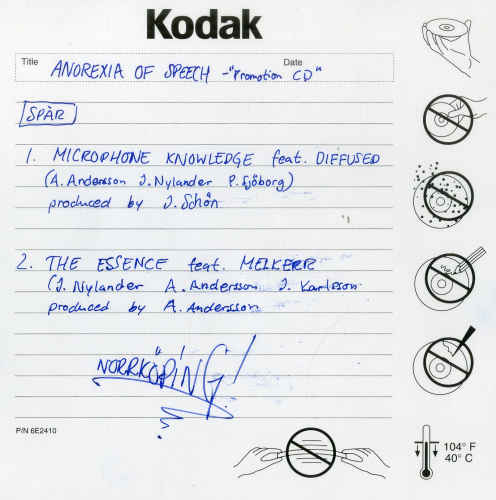 Kodak
Title Date
ANOREXIA OF SPEECH - "Promotion CD"
SPÅR
1. MICROPHONE KNOWLEDGE feat. DIFFUSED
(A. Andersson J. Nylander P. Sjöborg)
produced by J. Schön
2. THE ESSENCE feat. MELKERR
(J. Nylander A. Andersson J. Karlsson
produced by A. Andersson
NORRKÖPING!
P/N 6E2410
104° F
40° C